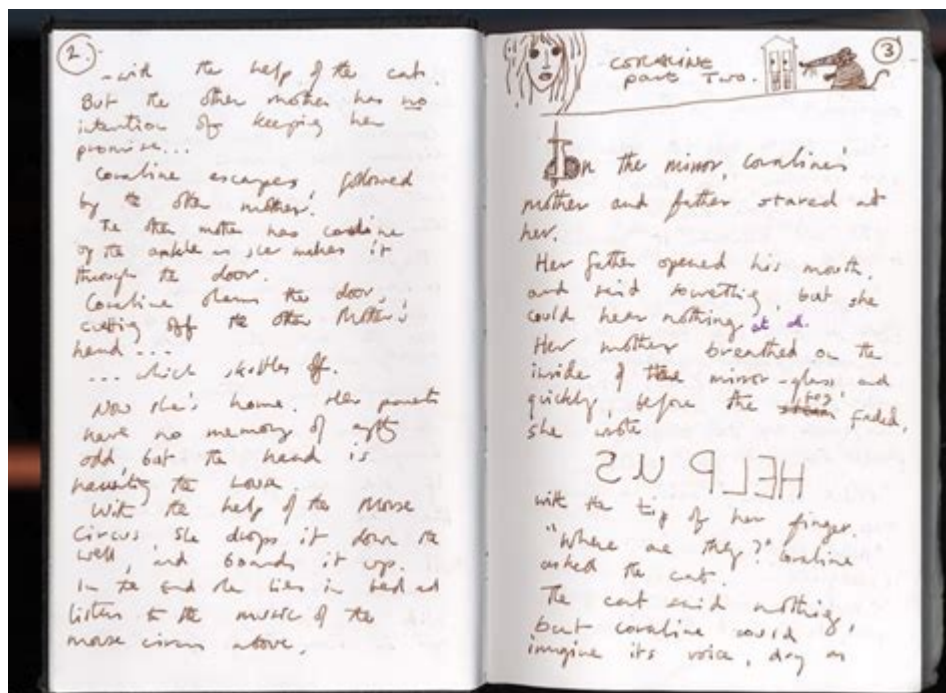 2.
- with the help of the cat.
But the other mother has no
intention of keeping her
promise...
Coraline escapes, followed
by the other mother.
The other mother has Coraline
by the ankle as she makes it
through the door.
Coraline slams the door,
cutting off the other mother's
hand...
... which skuttles off.
Now she's home. Her parents
have no memory of anything
odd, but the hand is
haunting the house.
With the help of the Mouse
Circus, she drops it down the
well, and boards it up.
In the end she lies in bed and
listens to the music of the
mouse circus above.
3
CORALINE
part Two.
In the mirror, Coraline's
mother and father stared at
her.
Her father opened his mouth,
and said something, but she
could hear nothing at al.
Her mother breathed on the
inside of the mirror-glass and
quickly, before the fog faded,
she wrote
HELP US
with the tip of her finger.
"Where are they?" Coraline
asked the cat.
The cat said nothing,
but Coraline could
imagine its voice, dry as